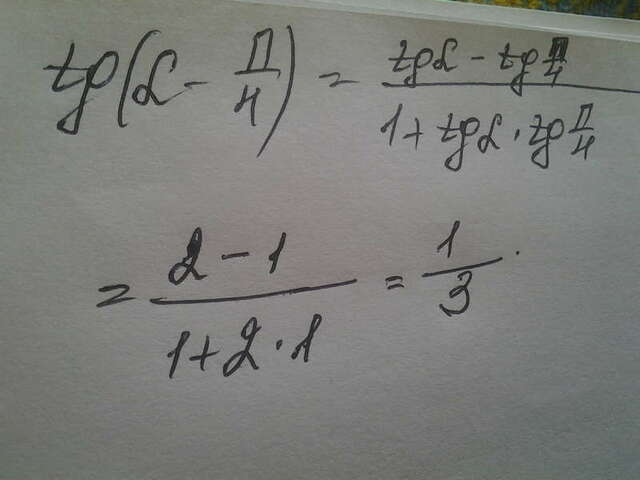 tg(α - П/4) = (tgα - tg П/4)/(1 + tgα · tg П/4)
= (2 - 1)/(1 + 2 · 1) = 1/3.